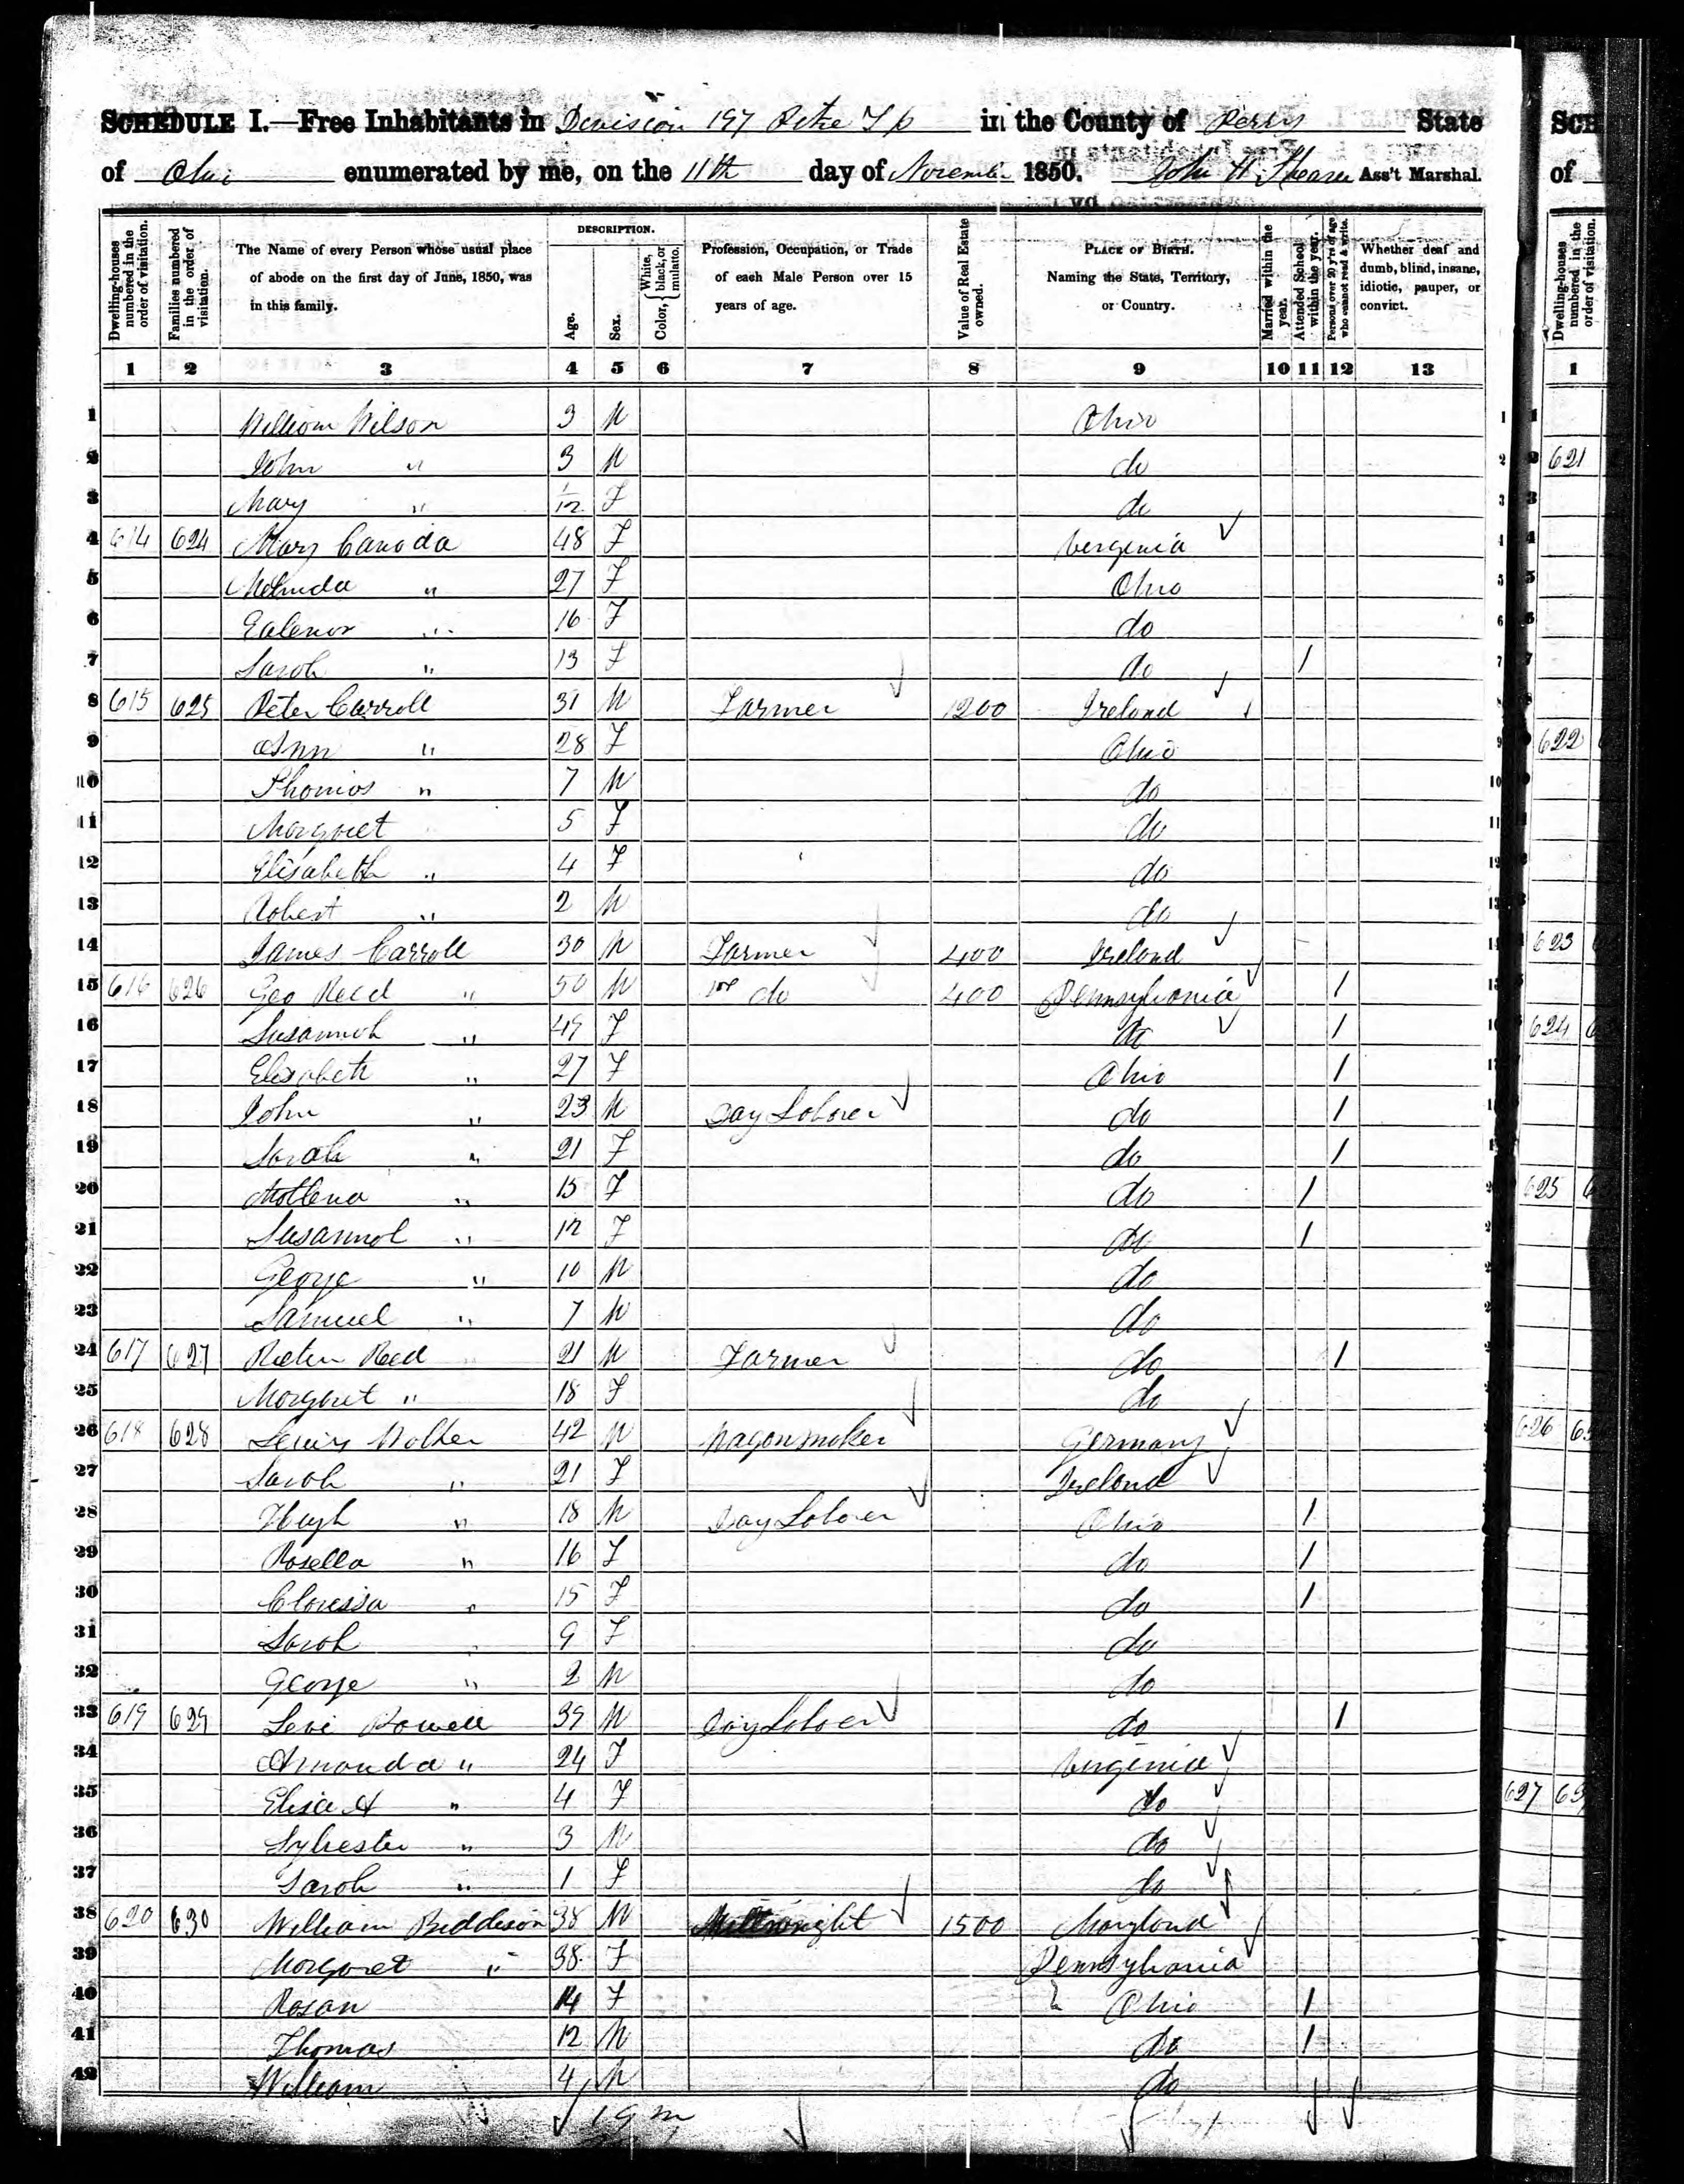 SCHEDULE I.—Free Inhabitants in Division 197 Pike Tp in the County of Perry State
of Ohio enumerated by me, on the 11th day of November 1850. John H. Shearer Ass't Marshal.
Dwelling-houses numbered in the order of visitation.
Families numbered in the order of visitation.
The Name of every Person whose usual place of abode on the first day of June, 1850, was in this family.
DESCRIPTION.
Age.
Sex.
Color, { White, black, or mulatto.
Profession, Occupation, or Trade of each Male Person over 15 years of age.
Value of Real Estate owned.
PLACE OF BIRTH. Naming the State, Territory, or Country.
Married within the year.
Attended School within the year.
Persons over 20 y'rs of age who cannot read & write.
Whether deaf and dumb, blind, insane, idiotic, pauper, or convict.
1 2 3 4 5 6 7 8 9 10 11 12 13
1 William Wilson 3 M Ohio
2 John " 3 M do
3 Mary " 1/12 F do
4 614 624 Mary Canoda 48 F Vergenia
5 Melinda " 27 F Ohio
6 Ealenor " 16 F do
7 Sarah " 13 F do /
8 615 625 Peter Carroll 31 M Farmer 1200 Ireland
9 Ann " 28 F Ohio
10 Thomas " 7 M do
11 Margaret 5 F do
12 Elisabeth " 4 F do
13 Robert " 2 M do
14 James Carroll 30 M Farmer 400 Ireland
15 616 626 Geo Reed " 50 M do 400 Pennsylvania /
16 Susannah " 49 F do /
17 Elisabeth " 27 F Ohio /
18 John " 23 M Day Laborer do /
19 Sarah " 21 F do /
20 " 15 F do /
21 Susannah " 12 F do /
22 George " 10 M do
23 Samuel " 7 M do
24 617 627 Reed 21 M Farmer do /
25 Margaret " 18 F do
26 618 628 Lewis Walker 42 M Wagonmaker Germany
27 Sarah " 21 F Ireland
28 Hugh " 18 M Day Laborer Ohio /
29 Rosella " 16 F do /
30 Claressa " 15 F do /
31 Sarah 9 F do
32 George " 2 M do
33 619 629 Levi Powell 39 M Day Laborer do /
34 Amanda " 24 F Vergenia
35 Elisa A " 4 F do
36 Sylvester " 3 M do
37 Sarah " 1 F do
38 620 630 William Biddison 38 M Millwright 1500 Maryland
39 Margaret " 38 F Pennsylvania
40 Rosan 14 F Ohio /
41 Thomas 12 M do /
42 William 4 M do
19 m
SCH
of
Dwelling-houses numbered in the order of visitation.
1
621
622
623
624
625
626
627